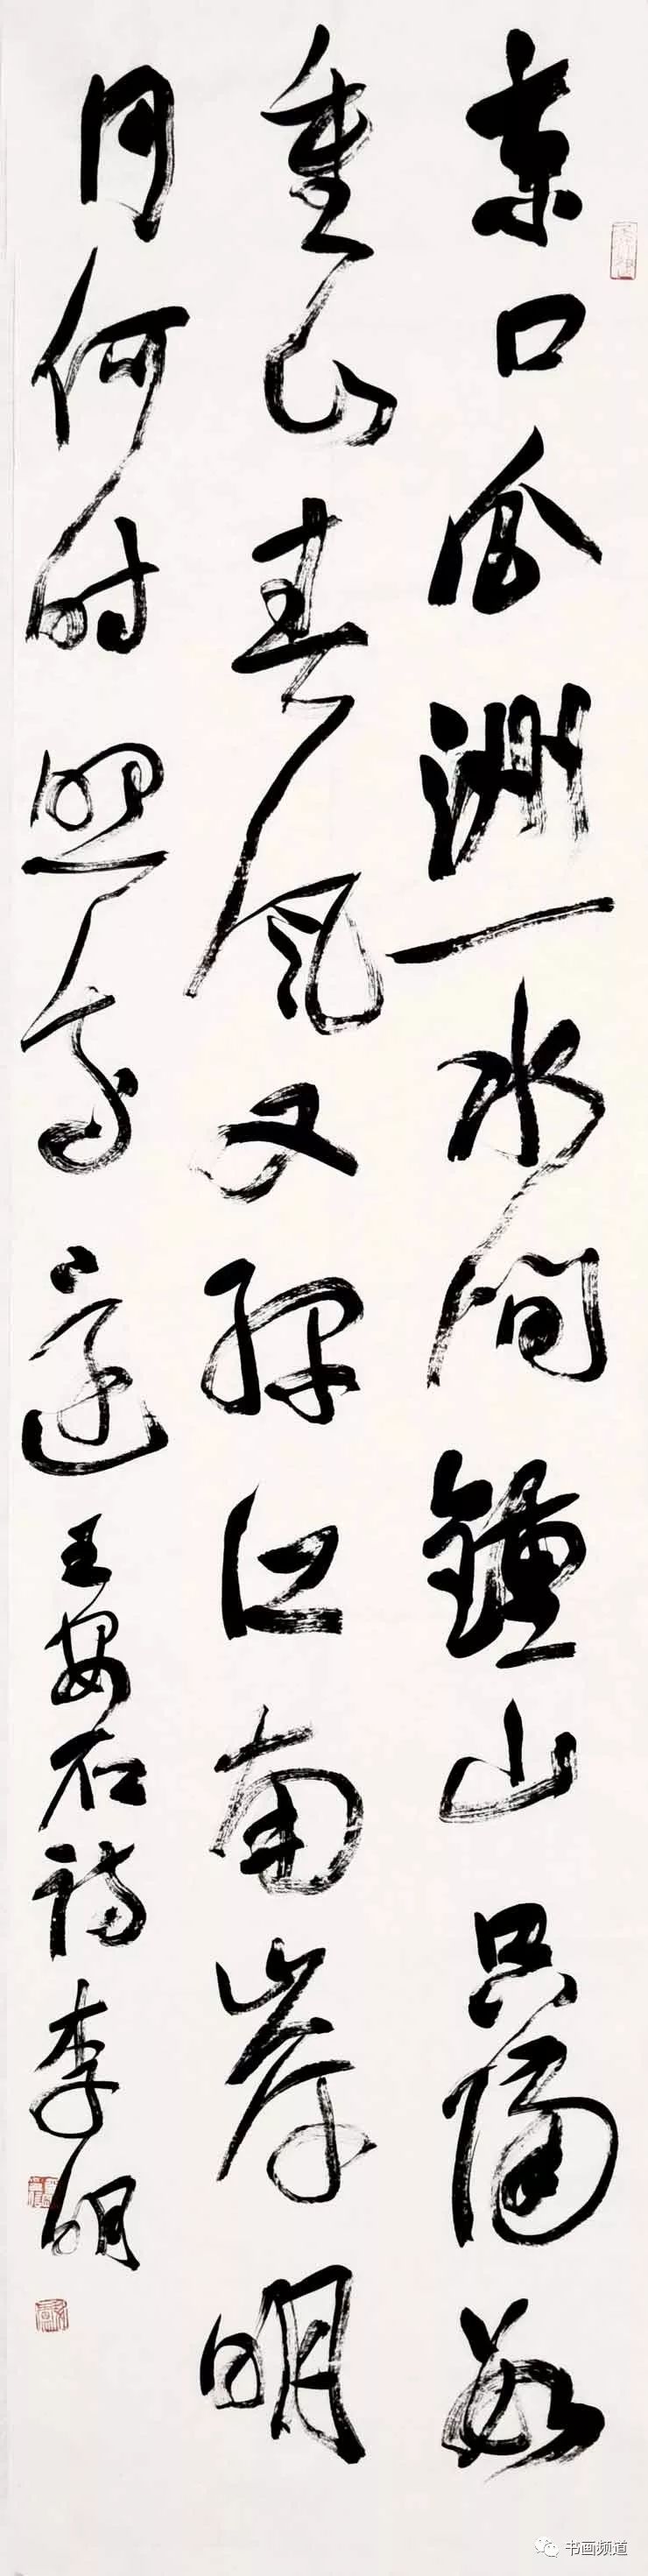 京口瓜洲一水间鍾山只隔数
重山春风又绿江南岸明
月何时照我还王安石诗李明
书画频道